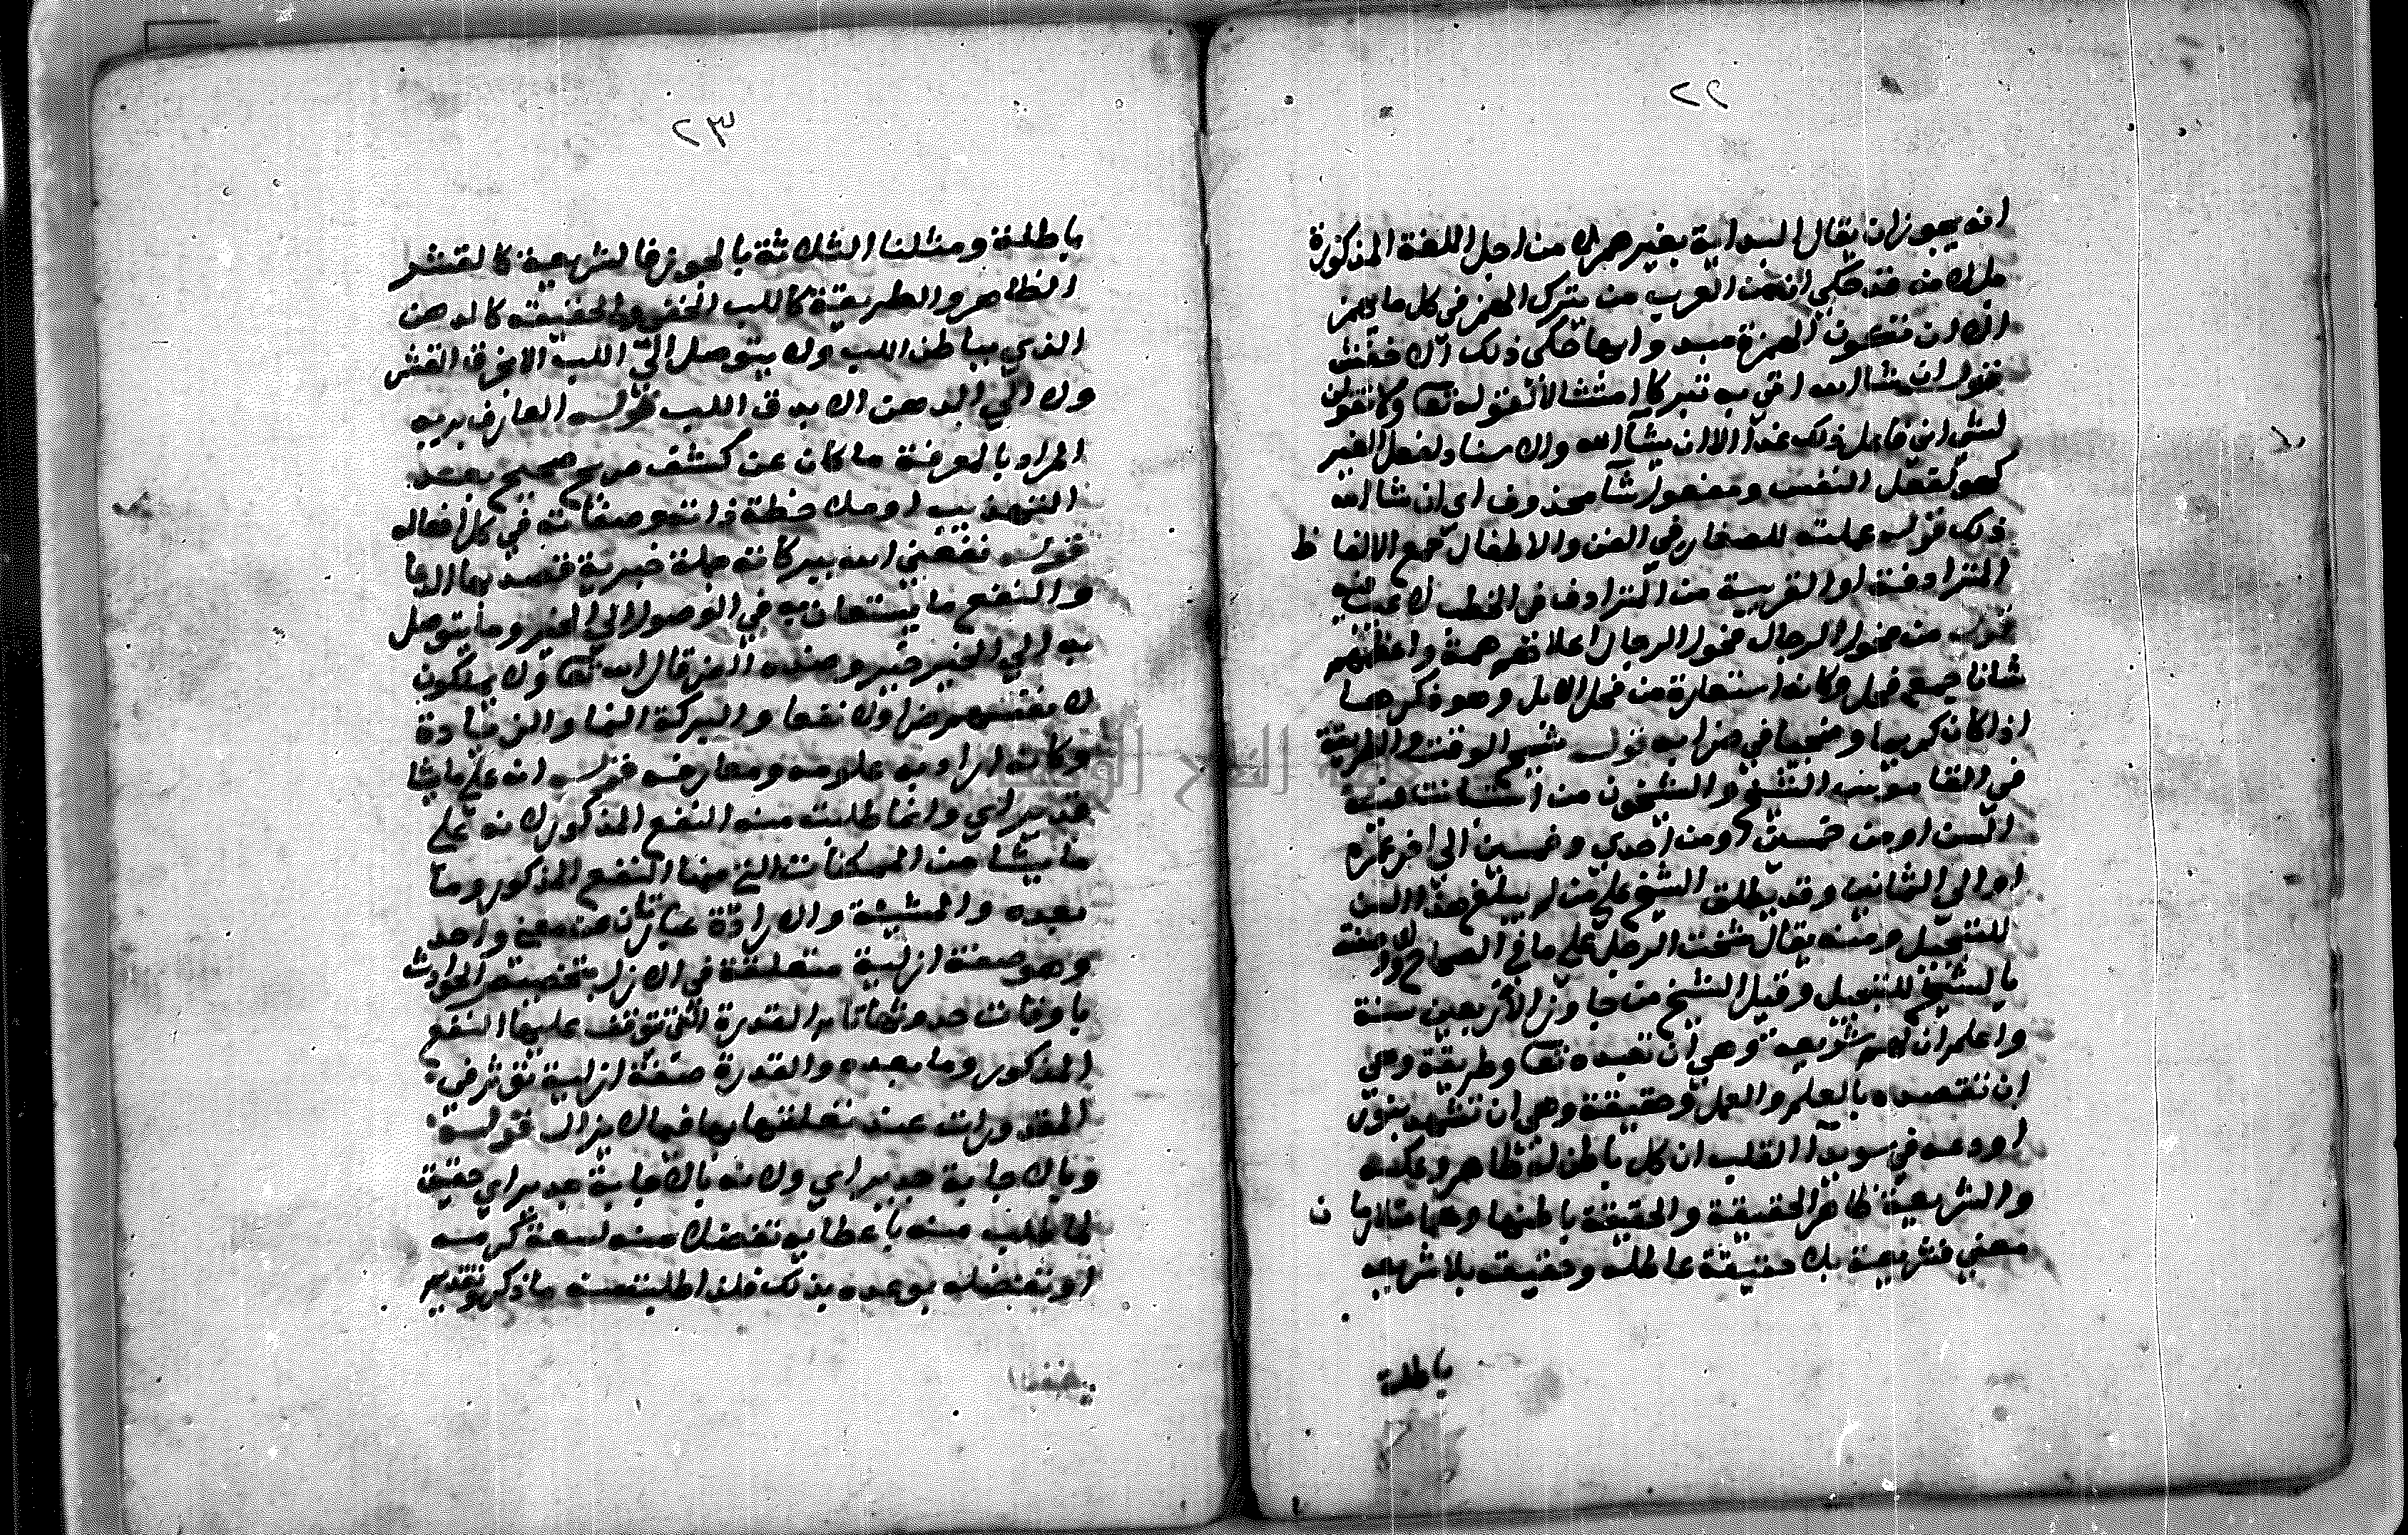 ٢٢
انه يجوز ان يقال البداية بغير همز لا من اجل اللغة المذكورة
لانه قد حكي ان من العرب من يترك الهمز في كل ما يهمز
الا ان تكون الهمزة مبدو ابها حكى ذلك الاخفش
قوله ان شا الله اتى به تبركا امتثالا لقوله تعا ولا تقولن
لشى انى فاعل ذلك غدا الا ان يشآ الله والاسناد لفعل الغير
كهو لفعل النفس ومفعول شآ محذوف اى ان شا الله
ذلك قوله عملته للصغار في الفن والاطفال جمع الالفاظ
المترادفة او القريبة من الترادف في الخطب لا عيب فيه
قوله من فحول الرجال فحول الرجال اعلاهم همة واعظمهم
شانا جمع فحل وكانه استعارة من فحل الابل وهو ذكرها
اذا كان كريما ومنجبا في ضرابه قوله شيخ الوقت والطريقة
في القاموس الشيخ والشيخون من استبانت فيه
السن او من خمسين او من احدي وخمسين الى اخر عمره
او الى الثمانين وقد يطلق الشيخ على من لم يبلغ هذا السن
للتبجيل ومنه يقال شيخت الرجل على ما في الصحاح اي وصفته
بالشيخ للتبجيل وقيل الشيخ من جاوز الاربعين سنة
واعلم ان لهم شريعه وهي ان تعبده تعا وطريقة وهي
ان تقصده بالعلم والعمل وحقيقة وهي ان تشهد بنور
اودعه في سويدآ القلب ان كل باطن له ظاهر وعكسه
والشريعة ظاهر الحقيقة والحقيقة باطنها وهما متلازمان
معني فشريعة بلا حقيقة عاطله وحقيقه بلا شريعه
باطلة
٢٣
باطلة ومثلنا الثلاثة بالجوزة فالشريعة كالقشر
الظاهر والطريقة كاللب الخفي والحقيقه كالدهن
الذي بباطن اللب ولا يتوصل الى اللب الا بخرق القشر
ولا الي الدهن الا بدق اللب قوله العارف بربه
المراد بالمعرفة ما كان عن كشف صريح صحيح بعد
التهذيب او ملاحظة ذاته وصفاته في كل افعاله
قوله نفعني الله ببركاته جملة خبرية قصد بها الدعا
والنفع ما يستعان به في الوصول الي الخير وما يتوصل
به الي الخير خير وضده الضر قال الله تعا ولا يملكون
لانفسهم ضرا ولا نفعا والبركة النما والزيادة
وكانه اراد به علومه ومعارفه قوله انه على ما يشا
قدير اي وانما طلبت منه النفع المذكور لانه على
ما يشا من الممكنات التي منها النفع المذكور وما
بعده والمشيئة والارادة عبارتان عن معني واحد
وهو صفة ازلية متعلقة في الازل بتخصيص الحوادث
باوقات حدوثها تاثير القدرة التي توقف عليها النفع
المذكور وما بعده والقدرة صفة ازلية تؤثر في
المقدورات عند تعلقها بها فيما لا يزال قوله
وبالاجابة جدير اي ولانه بالاجابة جدير اي حقيق
لما طلب منه باعطايه تفضلا منه لسعة كرمه
او تفضله بوعده بذلك فلذا طلبت منه ما ذكر وتقديم